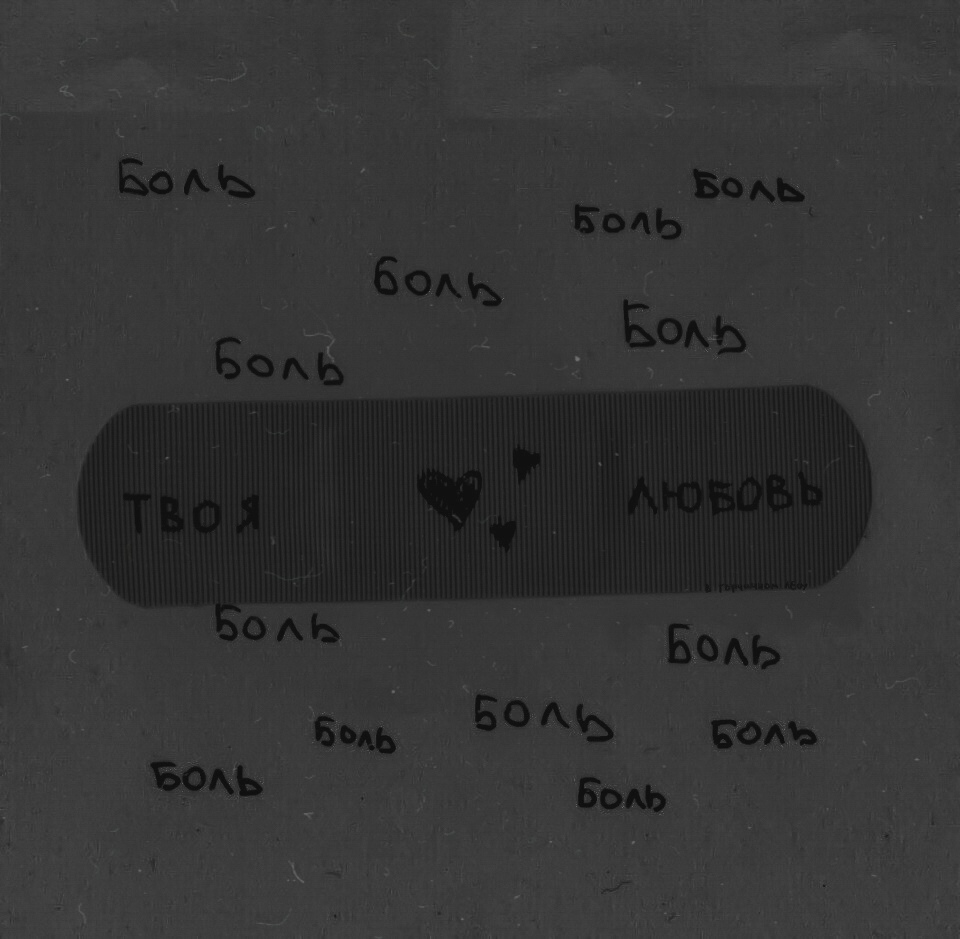 Боль
Боль
Боль
Боль
Боль
Боль
ТВОЯ ЛЮБОВЬ
Боль
Боль
Боль
Боль
Боль
Боль
Боль